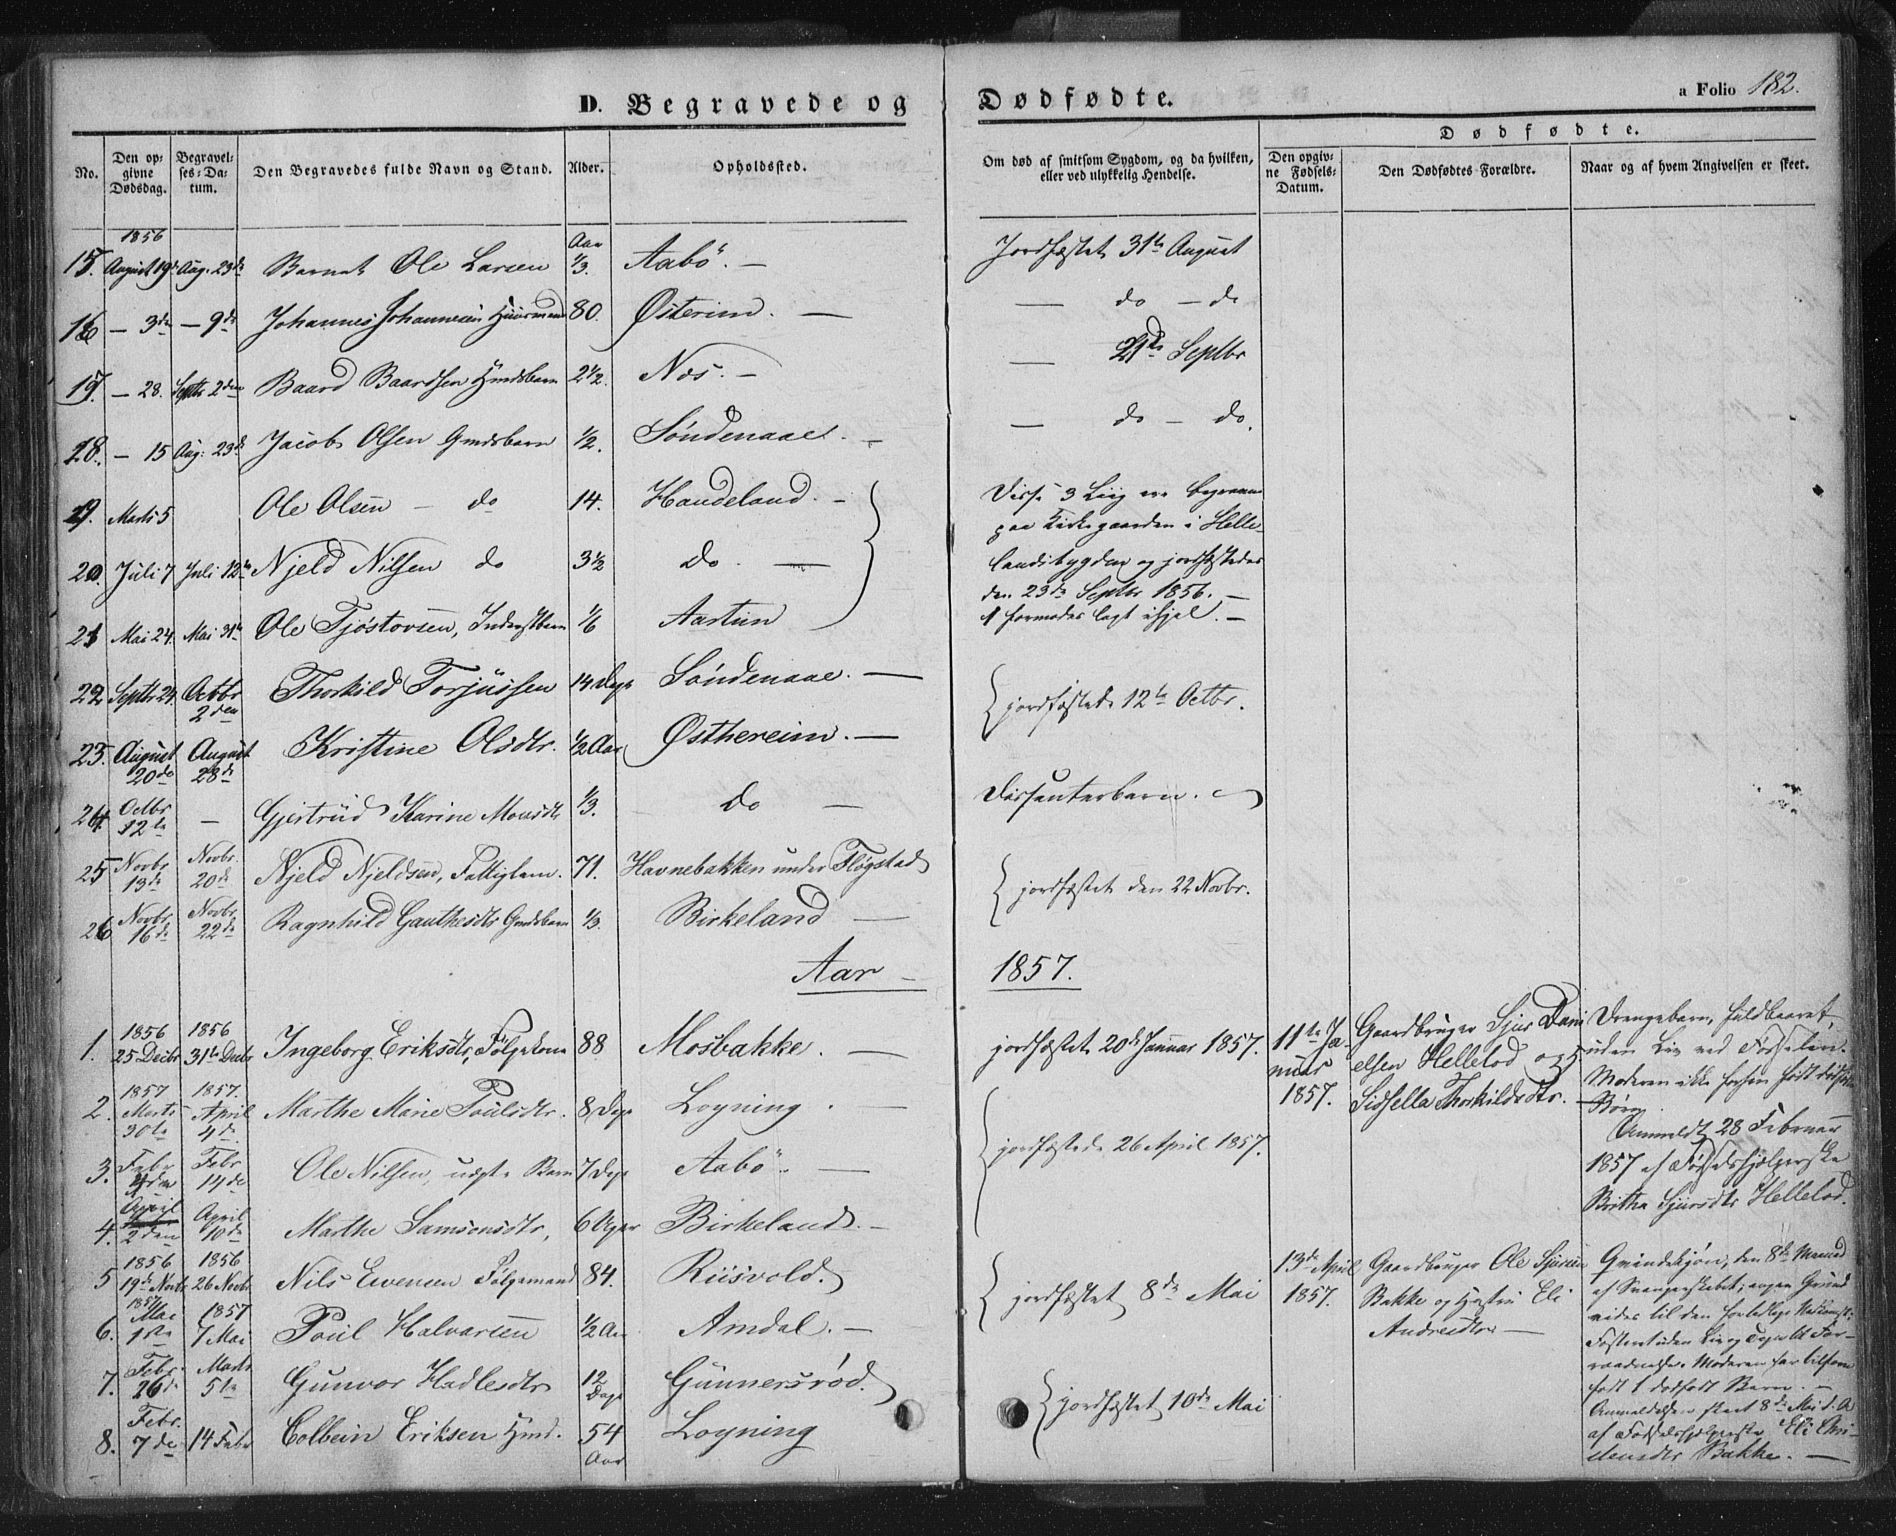 D. Begravede og Dødfødte.
a Folio 182.
No.
Den op-
givne
Dødsdag.
Begravel-
ses-Da-
tum.
Den Begravedes fulde Navn og Stand.
Alder.
Opholdssted.
Om død af smitsom Sygdom, og da hvilken,
eller ved ulykkelig Hendelse.
Dødfødte.
Den opgiv-
ne Fødsels-
Datum.
Den Dødfødtes Forældre.
Naar og af hvem Angivelsen er skeet.
1856 Aar
15. August 19 Aug. 23de Barnet Ole Larsen 1/3. Aabö. — Jordfæstet 31te August
16 — 3de — 9de Johannes Johannesen Huusmand 80. Østerim. — — do — do
17. — 28. Septbr 2den Baard Baardsen Hmdsbarn 2 1/2. Nes. — — 21de Septbr
18. — 15 Aug: 23de Jacob Olsen Gmdsbarn 1/2. Söndenaae. — — do — do.
19. Marts 5 Ole Olsen — do 14. Haudeland. — Disse 3 Liig ere begravne
paa Kirkegaarden i Helle-
20. Juli 7 Juli 12te Njeld Nilsen do 3 1/2 do. — landsbygden og jordfæstedes
den 23de Septbr 1856. —
21 Mai 24. Mai 31te Ole Tjöstovsen, Inderstbarn 1/6 Aastun † formodes lagt ihjel. —
22 Septbr 24. Octbr 2den Thorkild Torjussen 14 Dage Söndenaae. — jordfæstede 12te Octbr.
23. August 20de August 28de Kristine Olsdtr. 1/2 Aar Østhereim. —
24. Octbr 12te — Gjertrud Karine Monsdtr 1/3. do — Dissenterbarn.
25 Novbr 13de Novbr. 20de Njeld Njeldsen, Fattiglem. 71. Havnebakken under Fløgstad jordfæstet den 22 Novbr.
26 Novbr. 16de Novbr. 22de Ragnhild Gauthesdtr Gmdsbarn 1/3. Birkeland —
Aar — 1857.
1. 1856 25 Decbr 1856 31te Decbr Ingeborg Eriksdtr, Følgekone 88 Mosbakke. — jordfæstet 20de Januar 1857.
2. 1857 Marts 30te 1857. April 4de Marthe Marie Poulsdtr. 8 Dage Loyning. —
jordfæstede 26 April 1857.
3. Febr 4den Febr 14de Ole Nilsen, uægte Barn 7 Dage Aabö. —
4. April 2den April 10de Marthe Samsonsdtr, 6 Uger Birkeland. —
5 1856 19de Novbr 1856 26 Novbr Nils Evensen Følgemand 84. Riisvold. jordfæstet 8de Mai
6. 1857 Mai 1ste 1857 7 Mai Poul Halvarsen 1/2 Aar Amdal. —
7. Febr. 26de Marts 5te Gunvor Hadlesdtr 12 Dage Gunnersröd.
jordfæstet 10de Mai
8. Febr. 7de 14 Febr Colbein Eriksen Hmd. 54 Aar Loyning
11te Ja-
nuar
1857.
Gaardbruger Sjur Dani-
elsen Hellelod og
Sidsella Thorkildsdtr. —
Drengebarn, fuldbaaret,
uden Liv ved Fødselen.
Moderen ikke forhen født dødfødte
Børn.
Anmeldt 28 Februar
1857 af Fødselshjælperske
Britha Sjursdtr Hellelod.
13de April
1857.
Gaardbruger Ole Sjursen
Bakke og Hustru Eli
Andreasdtr —
Qvindekjøn, den 8de Maaned
af Svangerskabet; ingen Grund
vides til den fortidlige Nedkomst;
Fosteret uden Liv og Tegn til For-
raadnelse. Moderen har tilforn
født 1 dødfødt Barn. —
Anmeldelsen skeet 8de Mai d. A
af Fødselshjælperske Eli Chri-
stensdtr Bakke. —